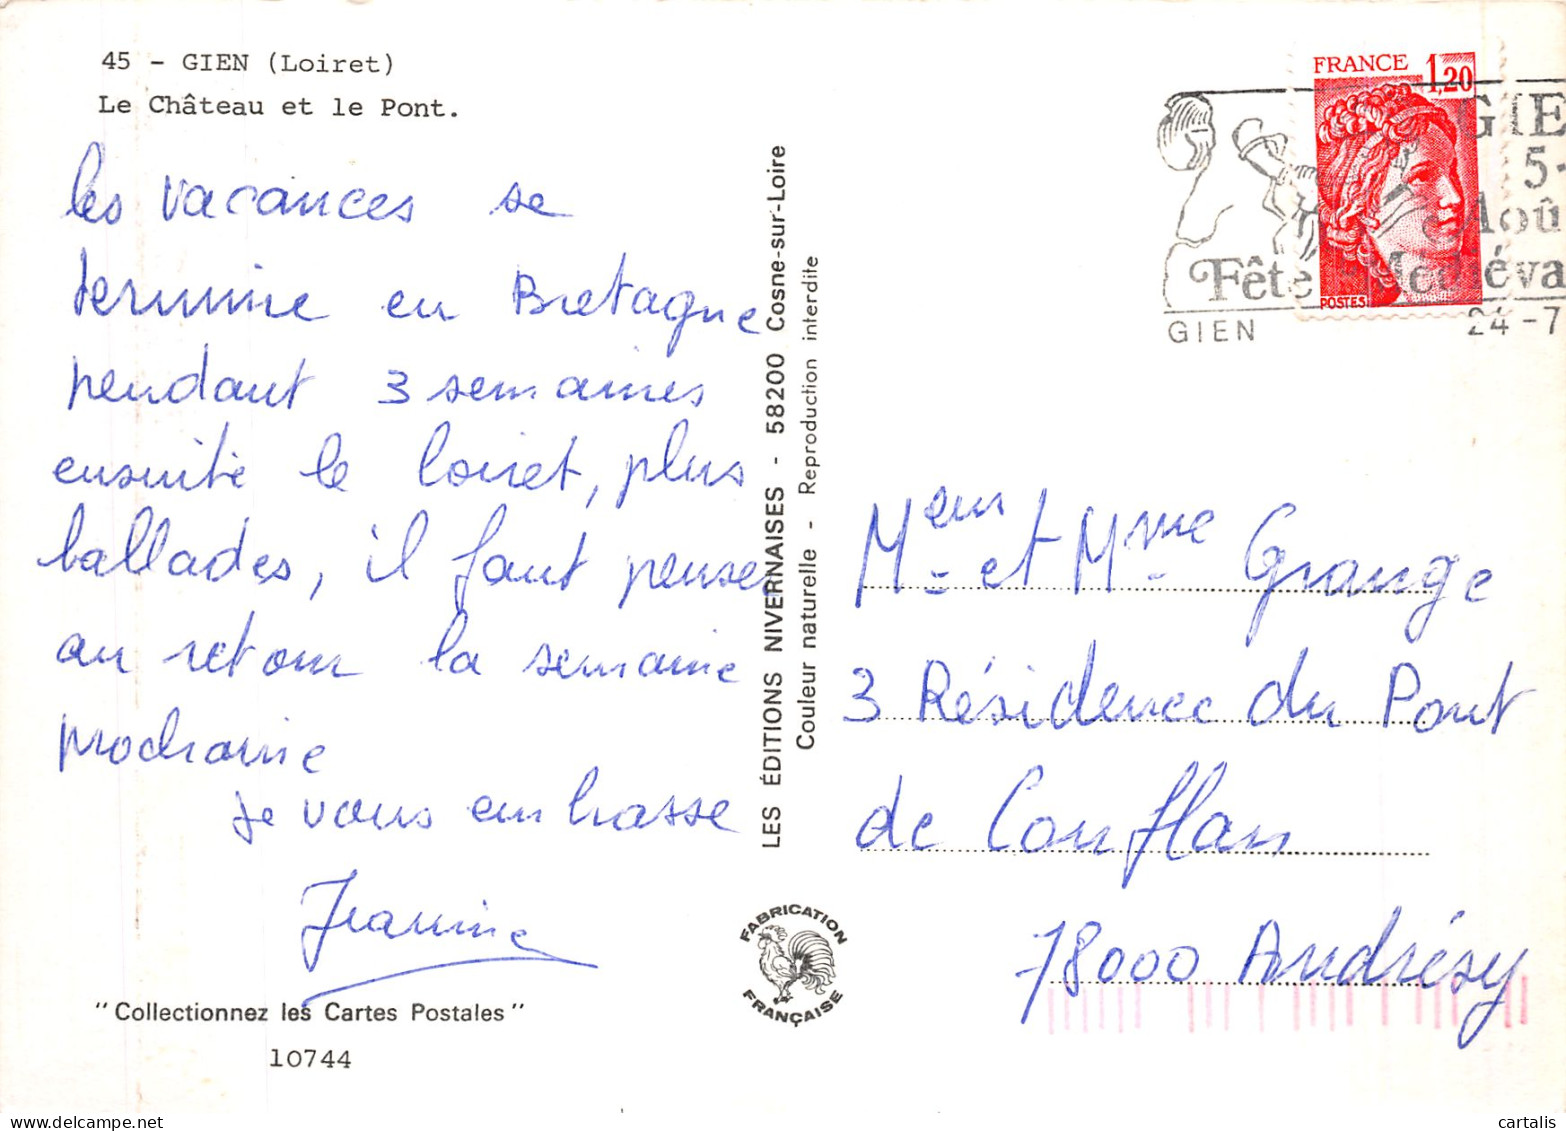 45 - GIEN (Loiret)
Le Château et le Pont.
les vacances se
termine en Bretagne
pendant 3 semaines
ensuite le loiret, plus
ballades, il faut penser
au retour la semaine
prochaine
Je vous embrasse
Jeannine
"Collectionnez les Cartes Postales"
10744
LES ÉDITIONS NIVERNAISES - 58200 Cosne-sur-Loire
Couleur naturelle - Reproduction interdite
FABRICATION
FRANÇAISE
FRANCE 1,20
POSTES
GIE
5-
Aoû
Fête Médiéva
GIEN 24-7
et Mme Grange
3 Résidence du Pont
de Conflan
78000 Andrésy
cartalis